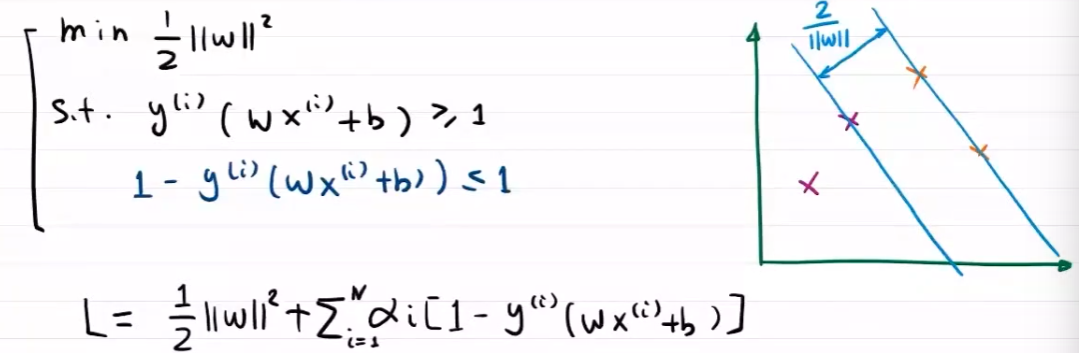 min 1/2 ||w||²
s.t. y⁽ⁱ⁾ ( w x⁽ⁱ⁾ + b ) ≥ 1
1 - y⁽ⁱ⁾ (w x⁽ⁱ⁾ + b) ) ≤ 1
L = 1/2 ||w||² + Σᵢ₌₁ᴺ αi [1 - y⁽ⁱ⁾ (w x⁽ⁱ⁾ + b )]
2/||w||